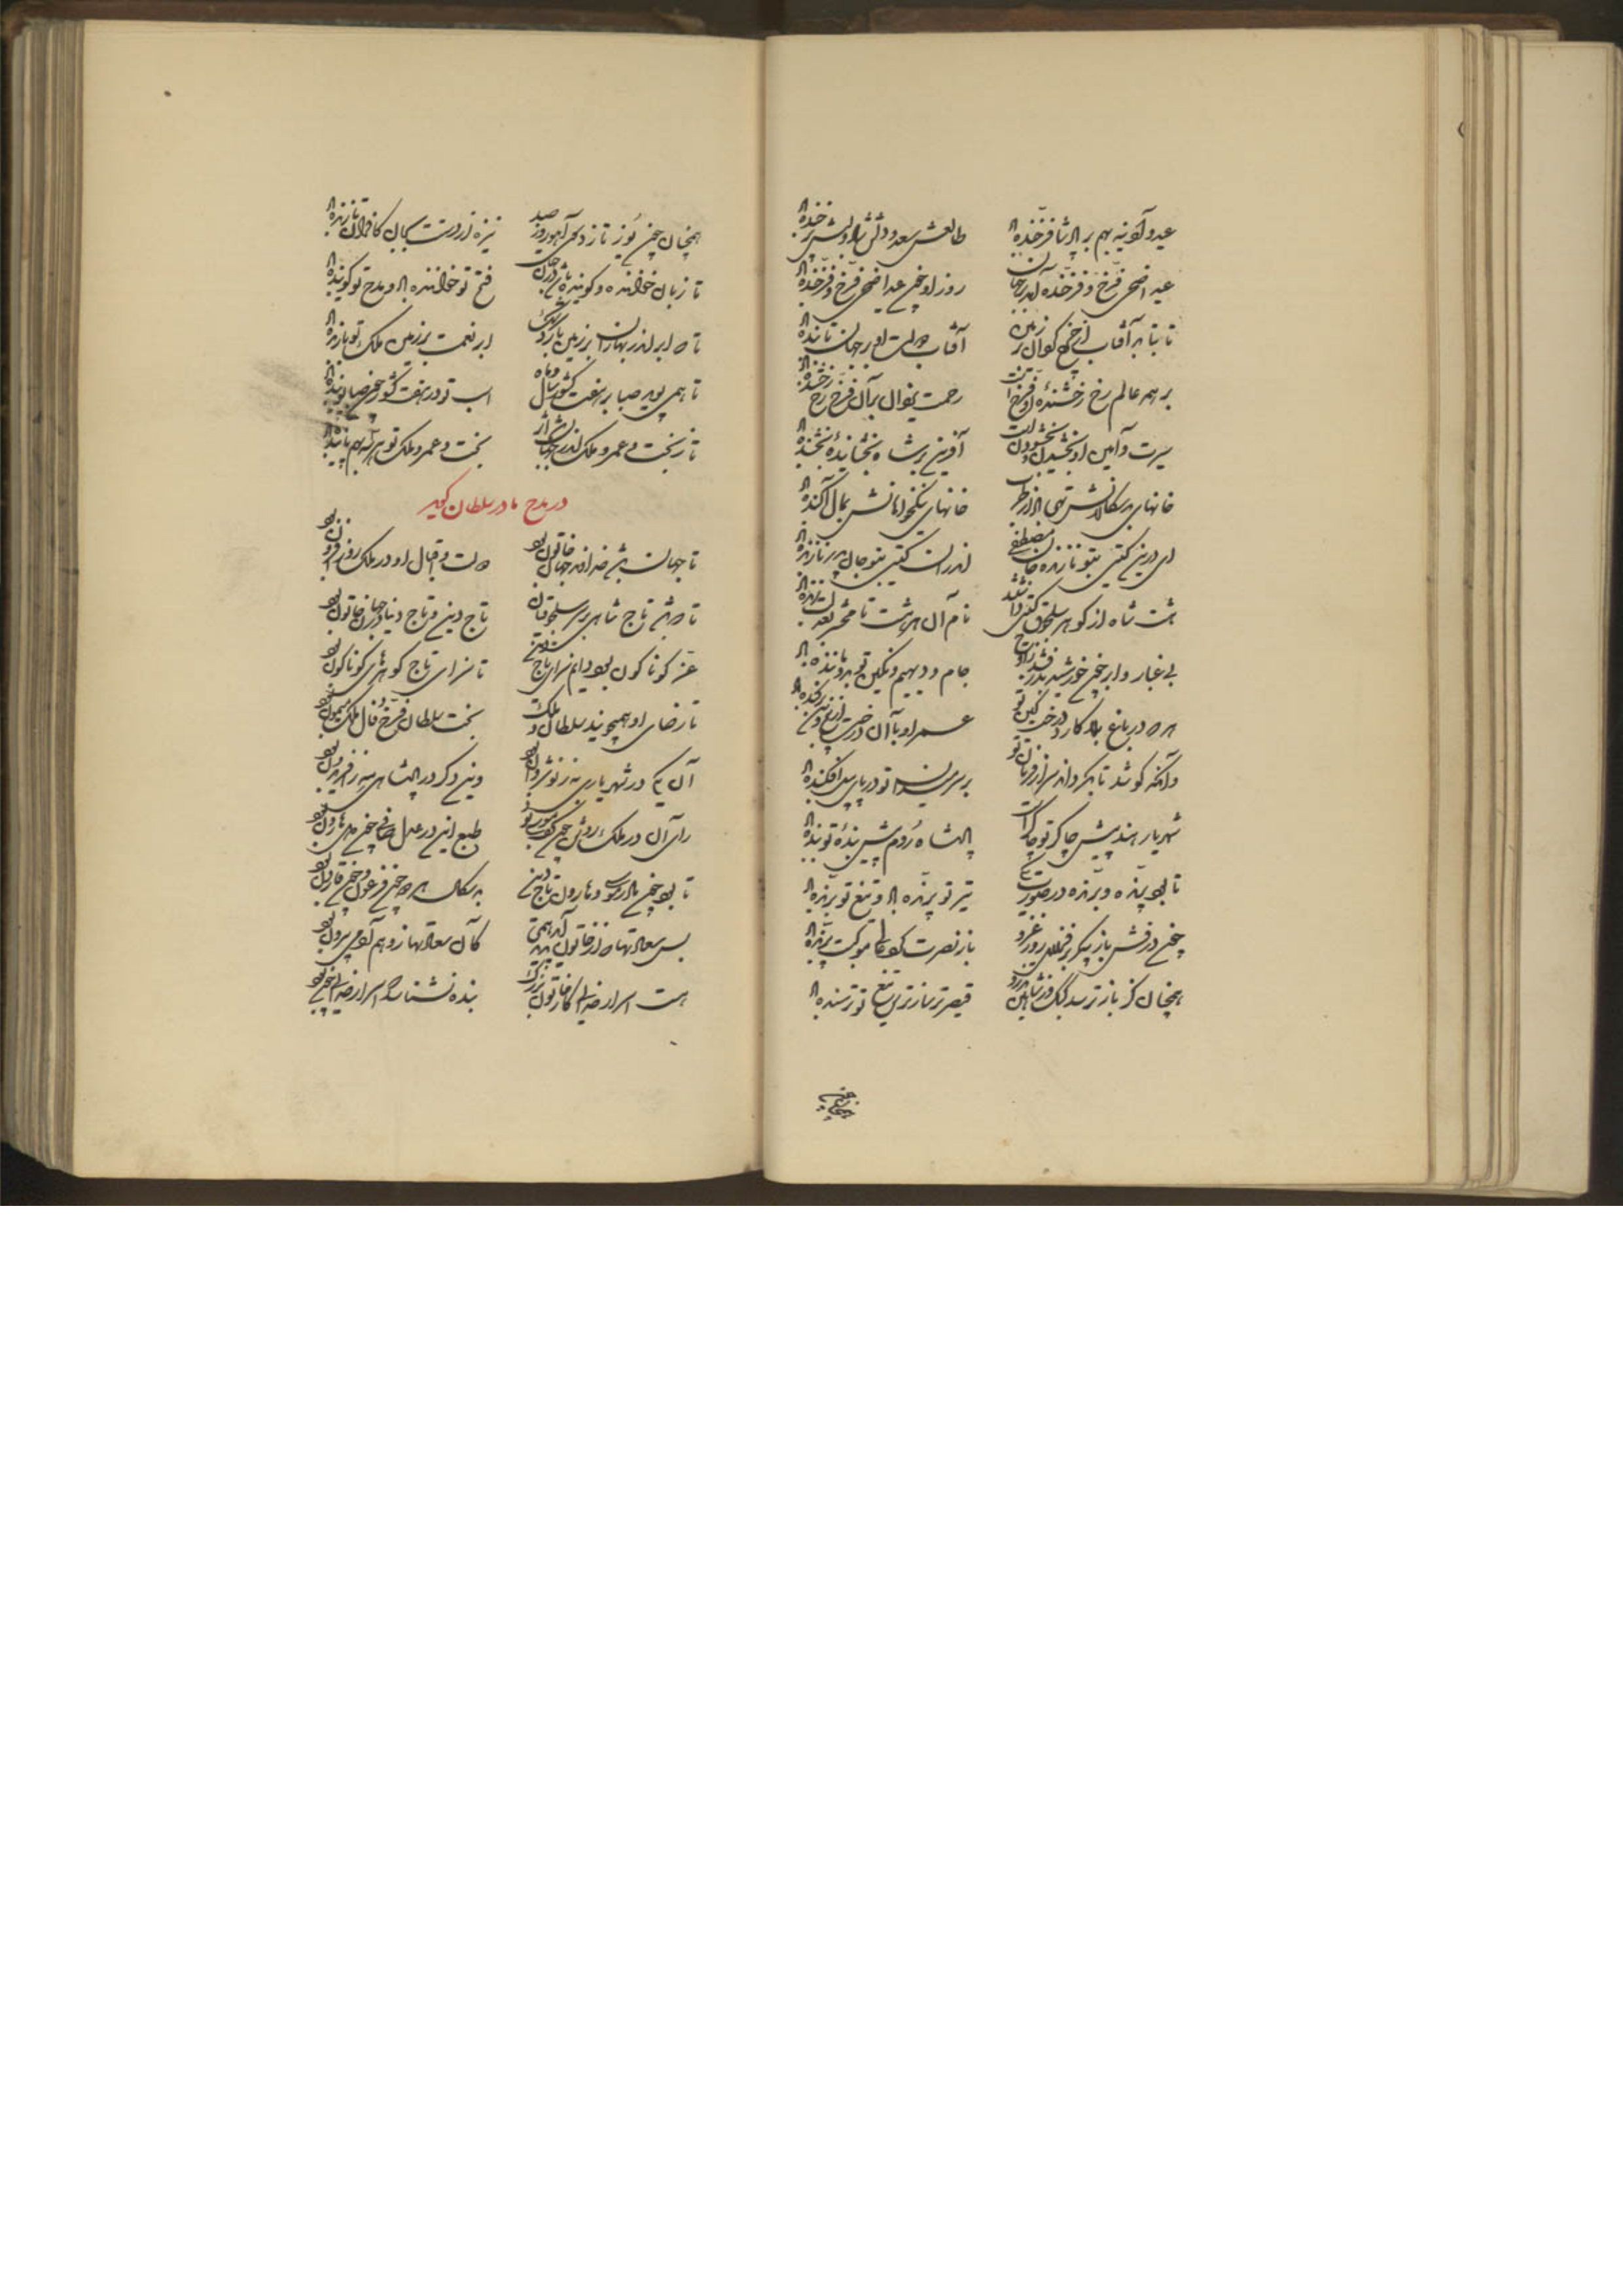 عید و آدینه بهم بر پادشا فرخنده باد طالعش سعد و دلش شاد و لبش پر خنده باد
عید اضحی فرخ و فرخنده آمد بر جهان روز او چون عید اضحی فرخ و فرخنده باد
تا بتابد آفتاب از چرخ گردان بر زمین آفتاب دولت او بر جهان تابنده باد
بر همه عالم رخ رخشندهٔ او فرخ است رحمت یزدان بر آن فرخ رخ رخشنده باد
سیرت و آیین او بخشیدن و بخشودن است آفرین بر شاه بخشایندهٔ بخشنده باد
خانهای بدسگالانش تهی باد از طرب خانهای نیکخواهانش بمال آکنده باد
ای درین گیتی بتو نازنده جان مصطفی اندر آن گیتی بتو جان پدر نازنده باد
هست شاه از گوهر سلجوق گیتی را نام آل سلجق تا محشر
بی غبار و ابر چون خورشید بدرفشد جام و دیهیم و نگین تو
هر که در باغ بلا کارد درخت کین تو عمر او با آن درخت از بیخ و بن برکنده باد
وانکه کوشد تا بگرداند سر از فرمان تو بر سر میدان تو در پای پیل افکنده باد
شهریار هند پیش چاکر تو چاکر است پادشاه روم پیش بندهٔ تو بنده باد
تا بود پرنده و برنده در صورت یکی تیر تو پرنده باد و تیغ تو برنده باد
چون درفش باز پیکر بر فرازی روز غزو باز نصرت گرد عالی موکبت پرنده باد
همچنان کز باز ترسد کبک در شاهین درو قیصر ترسا ز ترس تیغ تو ترسنده باد
همچنان چون یوز تازد بر آهو روز صید نیزه از دستت بجان کافران تازنده باد
تا زبان خواننده و گوینده باشد در جهان فتح تو خواننده باد و مدح تو گوینده باد
تا که ابر اندر بهاران بر زمین بارد سرشک ابر نعمت بر زمین ملک تو بارنده باد
تا همی پوید صبا بر هفت کشور سال و ماه اسب تو در هفت کشور چون صبا پوینده باد
تا ز بخت و عمر و ملک اندر جهان باشد اثر بخت و عمر و ملک تو هر سه بهم پاینده باد
در مدح مادر سلطان گوید
تا جهان باشد خداوند جهان خاتون بود دولت و اقبال او در ملک روز افزون بود
تا که باشد تاج شاهی بر سر سلجوقیان تاج دین و تاج دنیا در جهان خاتون بود
عز گوناگون بود دایم سزای تاج دین تا سزای تاج گوهرهای گوناگون بود
تا رضای او همی جویند سلطان و ملک بخت سلطان فرخ و فال ملک میمون بود
آن یکی در شهریاری به ز نوشروان بود وین دگر در پادشاهی به ز افریدون بود
رای آن در ملک روشن چون کف موسی بود طبع این در عدل صافی چون دل هارون بود
تا بود چون مادر موسی و هارون تاج دین بدسگالش هر دو چون فرعون و چون قارون بود
بس سعادتها که از خاتون پدید آمد همی کان سعادتها ز وهم آدمی بیرون بود
هست اسرار خدایی کار خاتون بزرگ بنده نشناسد که اسرار خدایی چون بود
همچنان چون